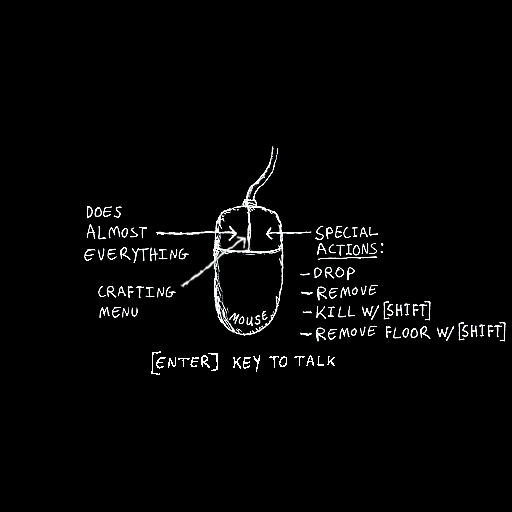 DOES
ALMOST
EVERYTHING
CRAFTING
MENU
SPECIAL
ACTIONS:
- DROP
- REMOVE
- KILL W/ [SHIFT]
- REMOVE FLOOR W/ [SHIFT]
MOUSE
[ENTER] KEY TO TALK